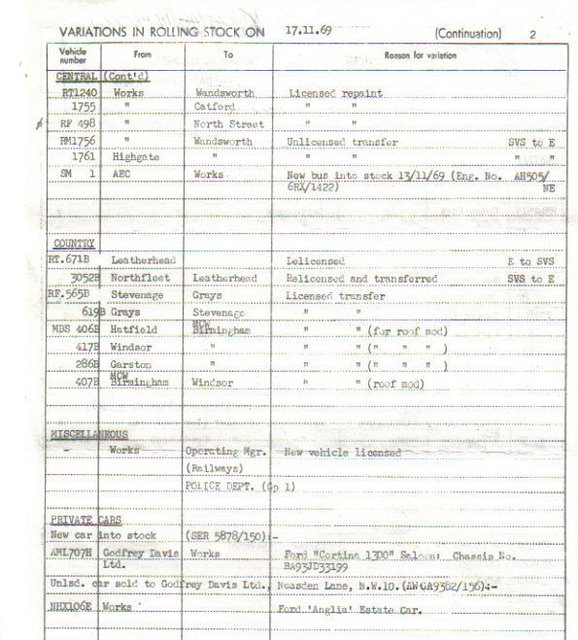 VARIATIONS IN ROLLING STOCK ON 17.11.69 (Continuation) 2
Vehicle number From To Reason for variation
CENTRAL (Cont'd)
RT1240 Works Wandsworth Licensed repaint
1755 " Catford " "
RF 498 " North Street " "
RM1756 " Wandsworth Unlicensed transfer SVS to E
1761 Highgate " " " " "
SM 1 AEC Works New bus into stock 13/11/69 (Eng. No. AH505/
6RX/1422) NE
COUNTRY
RT.671B Leatherhead Delicensed E to SVS
3052B Northfleet Leatherhead Relicensed and transferred SVS to E
RF.565B Stevenage Grays Licensed transfer
619B Grays Stevenage " "
MBS 406B Hatfield MCW Birmingham " " (for roof mod)
417B Windsor " " " (" " " )
286B Garston " " " (" " " )
407B MCW Birmingham Windsor " " (roof mod)
MISCELLANEOUS
- Works Operating Mgr. New vehicle licensed
(Railways)
POLICE DEPT. (Gp 1)
PRIVATE CARS
New car into stock (SER 5878/150):-
AML707H Godfrey Davis Works Ford "Cortina 1300" Saloon: Chassis No.
Ltd. BA93JD33199
Unlsd. car sold to Godfrey Davis Ltd., Neasden Lane, N.W.10. (AWGA9362/156):-
NHX106E Works Ford 'Anglia' Estate Car.